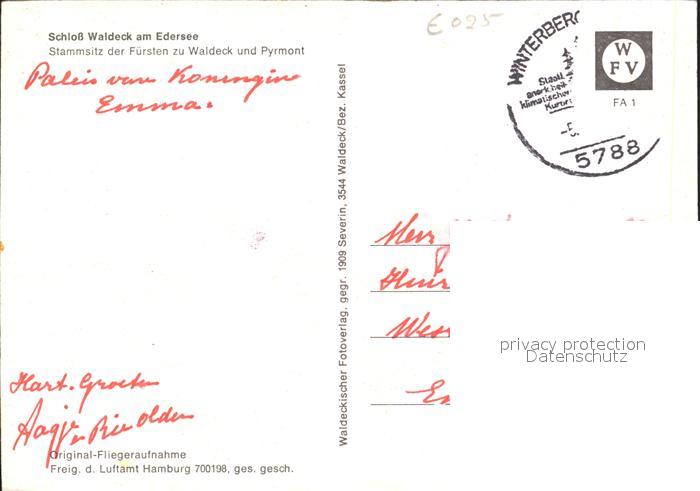 E 025
Schloß Waldeck am Edersee
Stammsitz der Fürsten zu Waldeck und Pyrmont
Paleis van Koningin
Emma.
WINTERBERG
Staatl.
anerk. heil-
klimatischer
Kurort
5788
W
F V
FA 1
Waldeckischer Fotoverlag, gegr. 1909 Severin, 3544 Waldeck/Bez. Kassel
privacy protection
Datenschutz
Hart. Groeten
Aagje
Original-Fliegeraufnahme
Freig. d. Luftamt Hamburg 700198, ges. gesch.